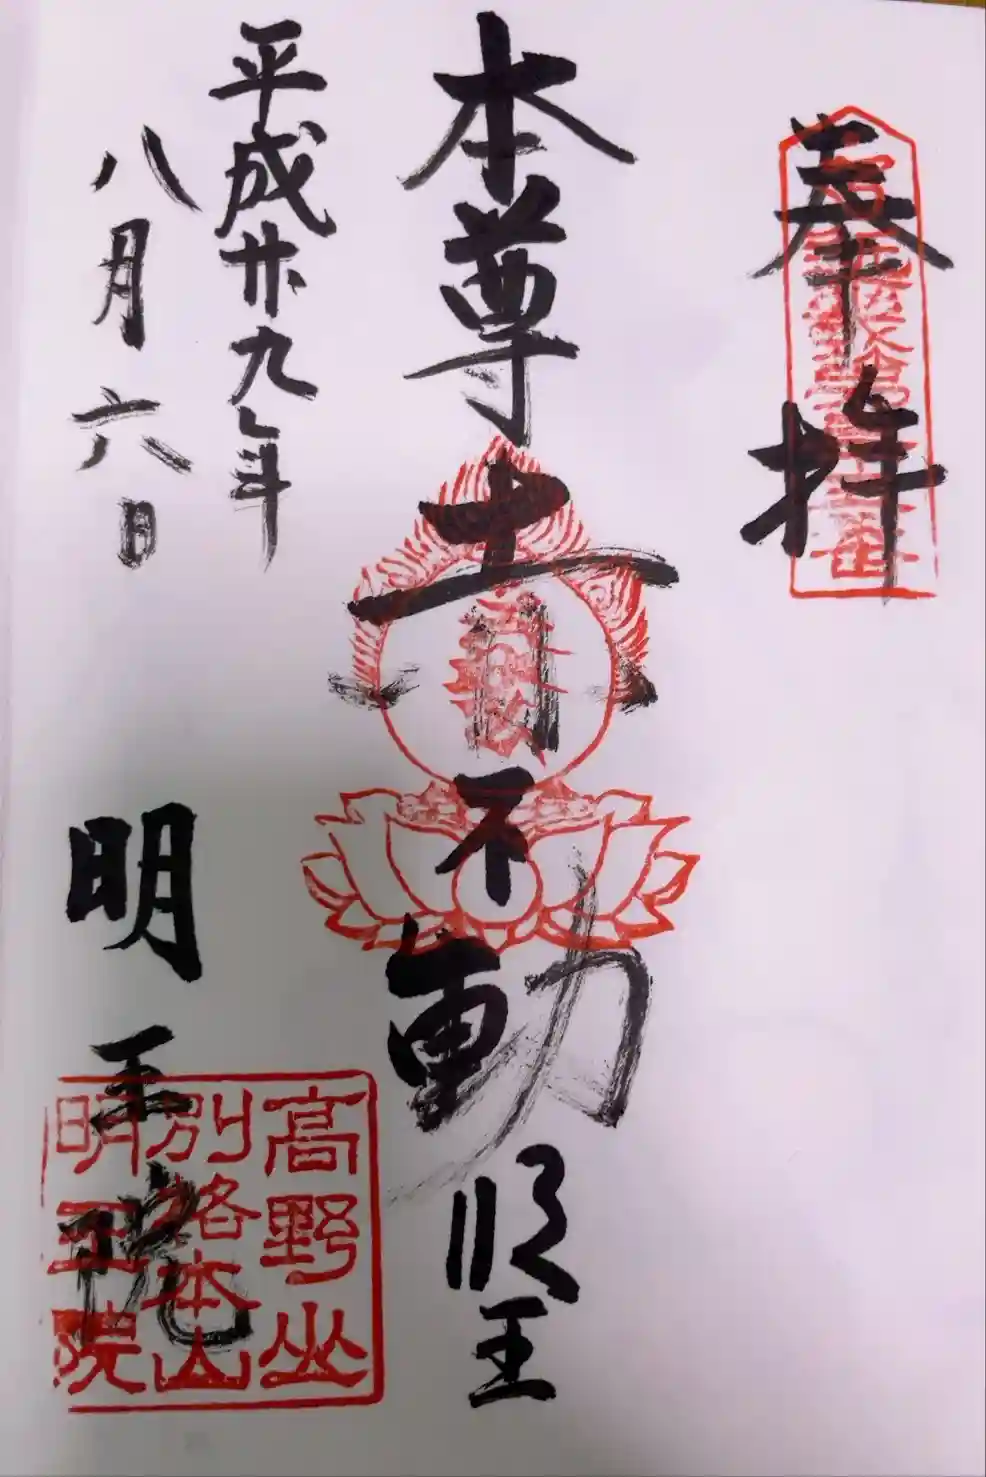 奉拝
本尊赤不動明王
平成廿九年
八月六日
明王院
高野山
別格本山
明王院